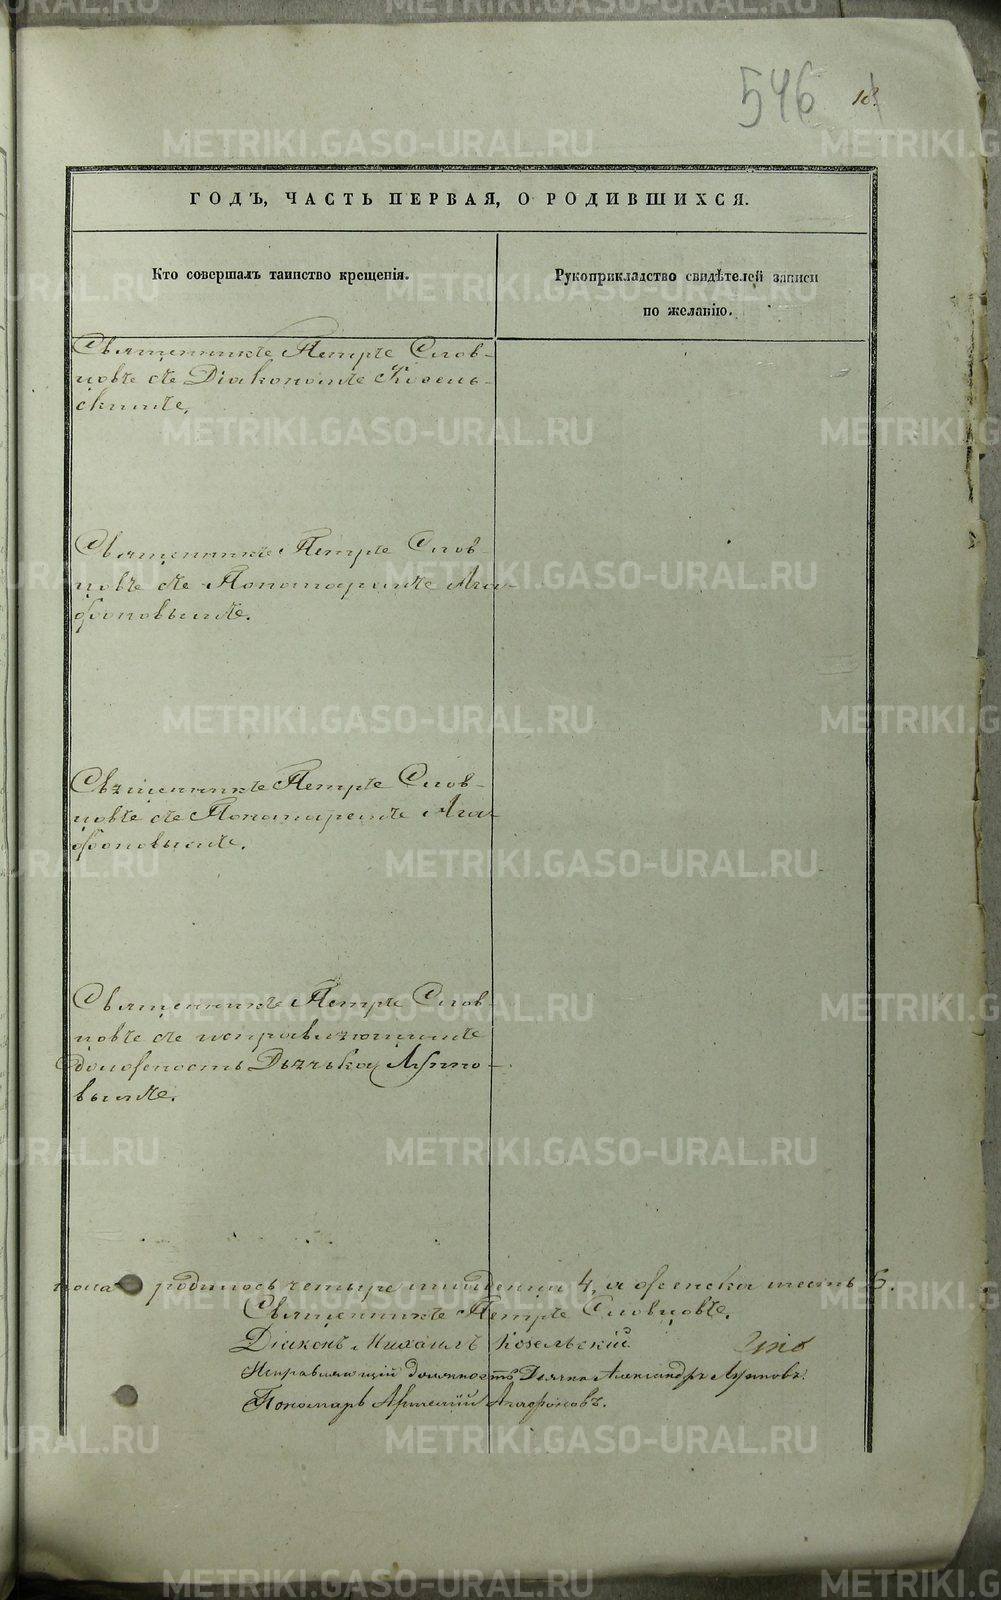 546
ГОДЪ, ЧАСТЬ ПЕРВАЯ, О РОДИВШИХСЯ.
Кто совершалъ таинство крещенія.
Рукоприкладство свидѣтелей записи
по желанію.
Священникъ Петръ Слов-
цовъ съ Діакономъ Козель-
скимъ.
Священникъ Петръ Слов-
цовъ съ Пономаремъ Ага-
фоновымъ.
Священникъ Петръ Слов-
цовъ съ Пономаремъ Ага-
фоновымъ.
Священникъ Петръ Слов-
цовъ съ исправляющимъ
должность Дьячька Луппо-
вымъ.
пола родилось четыре младенца 4, а женска шесть 6.
Священникъ Петръ Словцовъ.
Діаконъ Михаилъ Козельскій
Исправляющій должность Дьячка Александръ Лупповъ.
Пономарь Агафоновъ.
METRIKI.GASO-URAL.RU